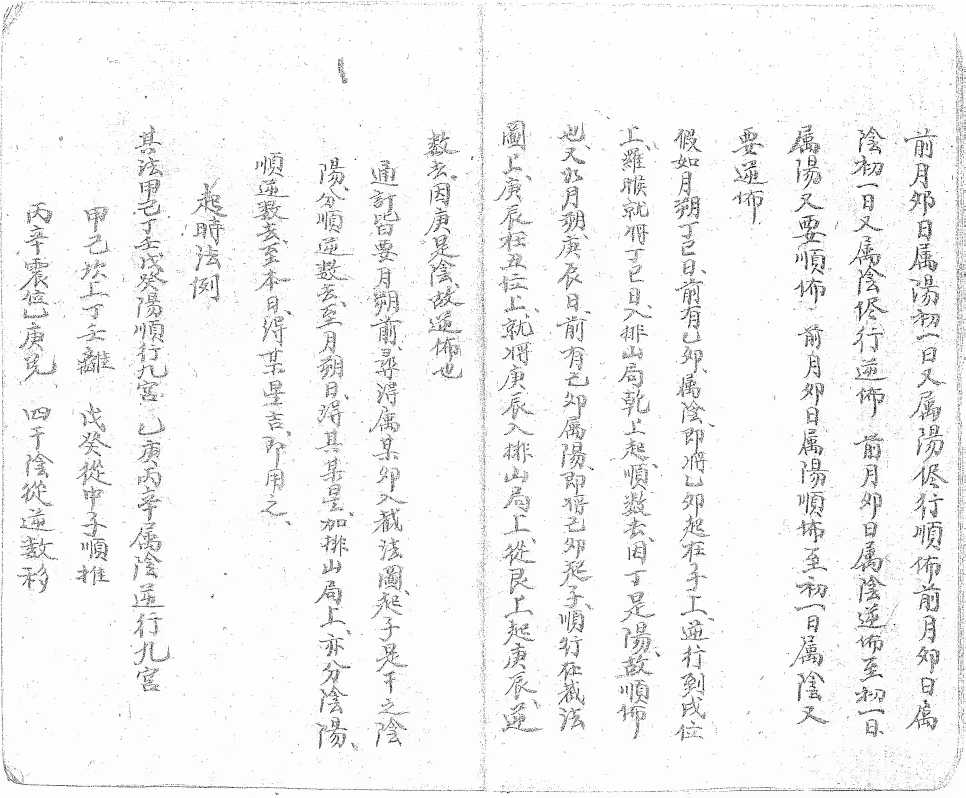 前月夘日属陽初一日又属陽侭行順佈前月夘日属
陰初一日又属陰侭行逆佈 前月夘日属陰逆佈至初一日
属陽又要順佈 前月夘日属陽順佈至初一日属陰又
要逆佈
假如月朔丁巳日、前有乙夘、属陰、即將乙夘起在子上、逆行到戌位
上、羅睺就將丁巳日、入排山局乾上起、順数去、因丁是陽、故順佈
也、又如月朔庚辰日、前有己夘属陽、即將己夘起子、順行在截法
圖上、庚辰在丑位上、就將庚辰入排山局上、從艮上起庚辰、逆
数去、因庚是陰、故逆佈也
通訂皆要月朔前、尋得属某夘入截法圖、起子是干之陰
陽、分順逆数去、至月朔日、得其某星、加排山局上、亦分陰陽、
順逆数去、至本日、得某星吉、即用之、
起時法例
其法甲己丁壬戊癸陽順行九宮 乙庚丙辛属陰逆行九宮
甲己坎上丁壬離 戊癸從中子順推
丙辛震位乙庚兑 四干陰從逆数移